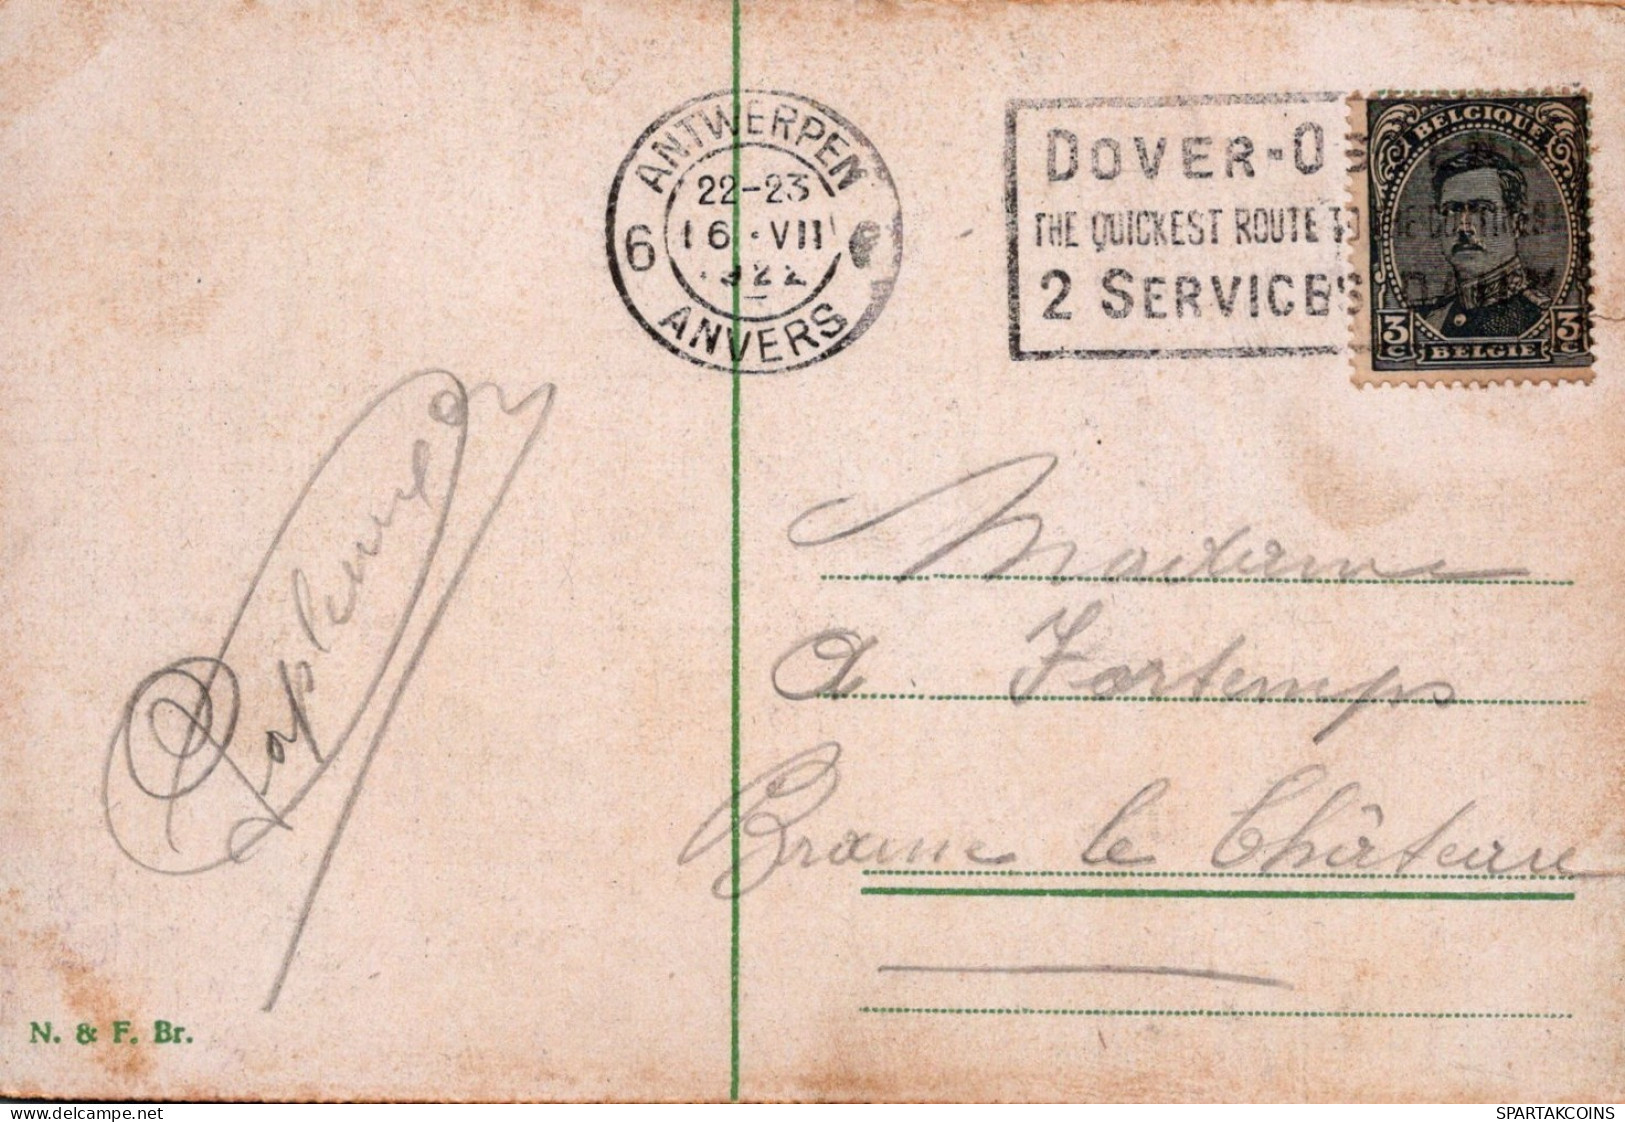 ANTWERPEN
22-23
16·VII
1922
6
ANVERS
DOVER-O
THE QUICKEST ROUTE TO THE CONTINENT
2 SERVICES DAILY
BELGIQUE
3 C 3 C
BELGIE
Madame
A. Fortemps
Braine le Château
N. & F. Br.
SPARTAKCOINS
www.delcampe.net